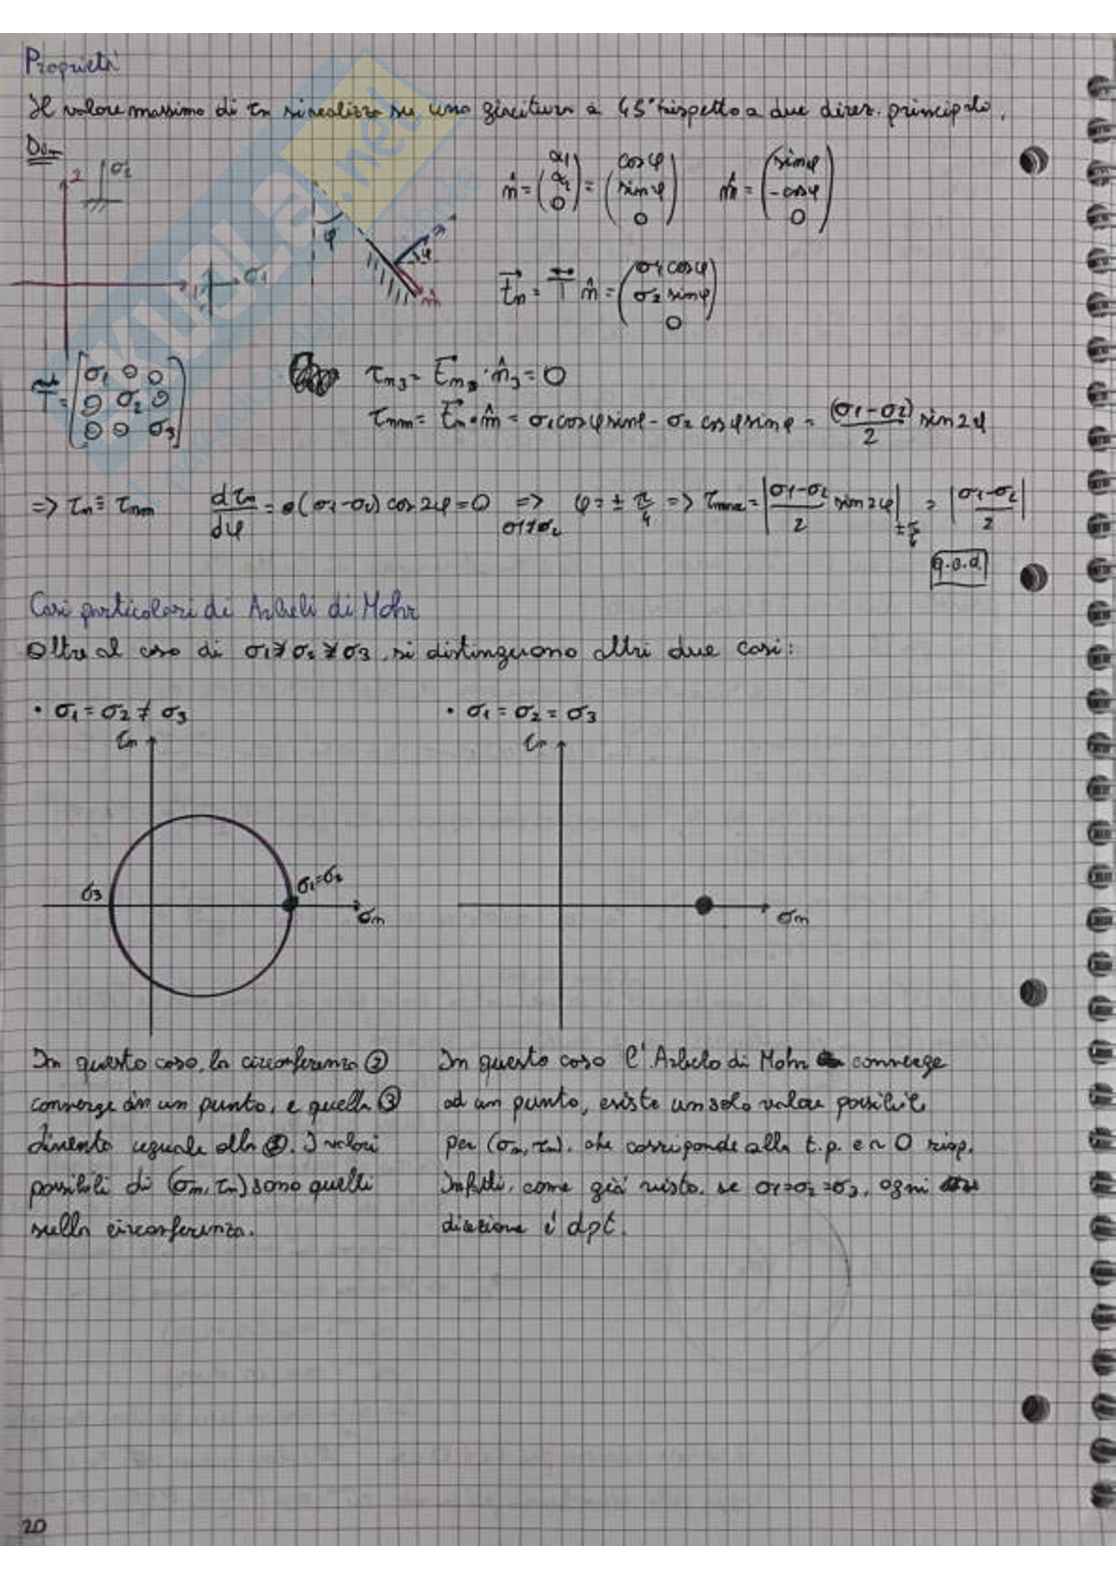 Proprietà
Il valore massimo di τn si realizza su una giacitura a 45° rispetto a due direz. principale.
Dem
2 σ2
n̂ = (α1 α2 0) = (cosφ sinφ 0) m̂ = (sinφ -cosφ 0)
φ φ
1 σ1 m̂
tn = T n̂ = (σ1 cosφ σ2 sinφ 0)
T = [σ1 0 0 0 σ2 0 0 0 σ3]
τn3 = tn · n̂3 = 0
τnm = tn · m̂ = σ1 cosφ sinφ - σ2 cosφ sinφ = (σ1-σ2)/2 sin2φ
=> τn ≡ τnm dτn/dφ = (σ1-σ2) cos2φ = 0 => σ1≠σ2 φ = ± π/4 => τmax = |σ1-σ2/2 sin2φ| = |σ1-σ2/2|
q.e.d.
Casi particolari di Arbeli di Mohr
Oltre al caso di σ1≠σ2≠σ3, si distinguono altri due casi:
• σ1 = σ2 ≠ σ3
τn
σ3 σ1=σ2
σn
In questo caso, la circonferenza
converge in un punto, e quella ③
diventa uguale alla I valori
possibili di (σn, τn) sono quelli
sulla circonferenza.
• σ1 = σ2 = σ3
τn
σn
In questo caso l'Arbelo di Mohr converge
ad un punto, esiste un solo valore possibile
per (σn, τn), che corrisponde alla t.p. e a 0 risp.
Infatti, come già visto, se σ1=σ2=σ3, ogni
direzione è dpt.
20
KUULA.net